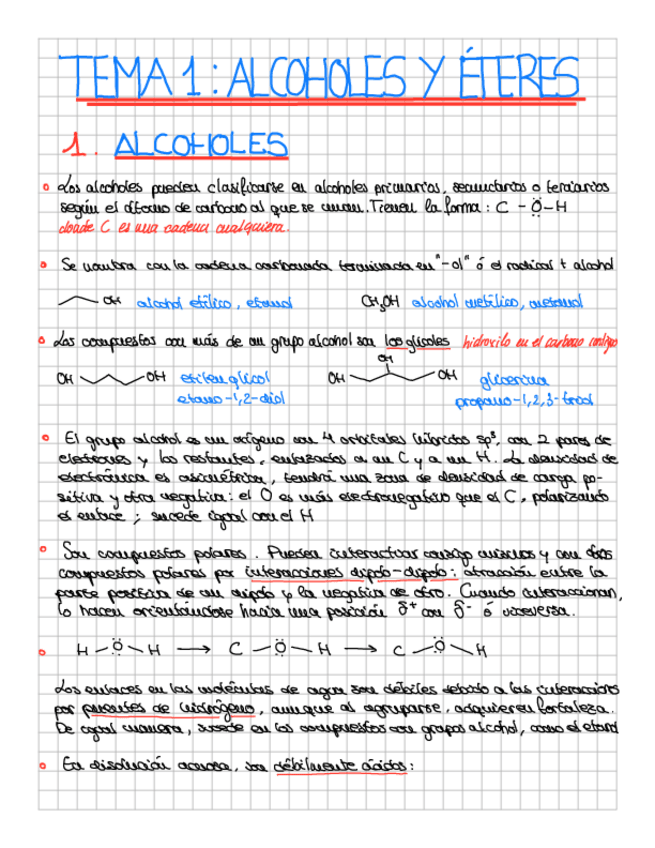 TEMA 1: ALCOHOLES Y ÉTERES
1. ALCOHOLES
Los alcoholes pueden clasificarse en alcoholes primarios, secundarios o terciarios
según el átomo de carbono al que se unan. Tienen la forma: C - Ö - H
donde C es una cadena cualquiera.
Se nombra con la cadena carbonada terminada en "-ol" ó el radical + alcohol
OH alcohol etílico, etanol CH₃OH alcohol metílico, metanol
Los compuestos con más de un grupo alcohol son los glicoles hidroxilo en el carbono contiguo
OH OH etilenglicol OH OH OH glicerina
etano-1,2-diol propano-1,2,3-triol
El grupo alcohol es un oxígeno con 4 orbitales híbridos sp³, con 2 pares de
electrones y los restantes, enlazados a un C y a un H. La densidad de
electrónica es asimétrica, tendrá una zona de densidad de carga po-
sitiva y otra negativa: el O es más electronegativo que el C, polarizando
el enlace; sucede igual con el H
Son compuestos polares. Pueden interactuar consigo mismos y con otros
compuestos polares por interacciones dipolo-dipolo: atracción entre la
parte positiva de un dipolo y la negativa de otro. Cuando interaccionan,
lo hacen orientándose hacia una posición δ⁺ con δ⁻ ó viceversa.
H - Ö - H → C - Ö - H → C - Ö - H
Los enlaces en las moléculas de agua son débiles debido a las interacciones
por puentes de hidrógeno, aunque al agruparse, adquieren fortaleza.
De igual manera, sucede en los compuestos con grupos alcohol, como el etanol
En disolución acuosa, son débilmente ácidos: